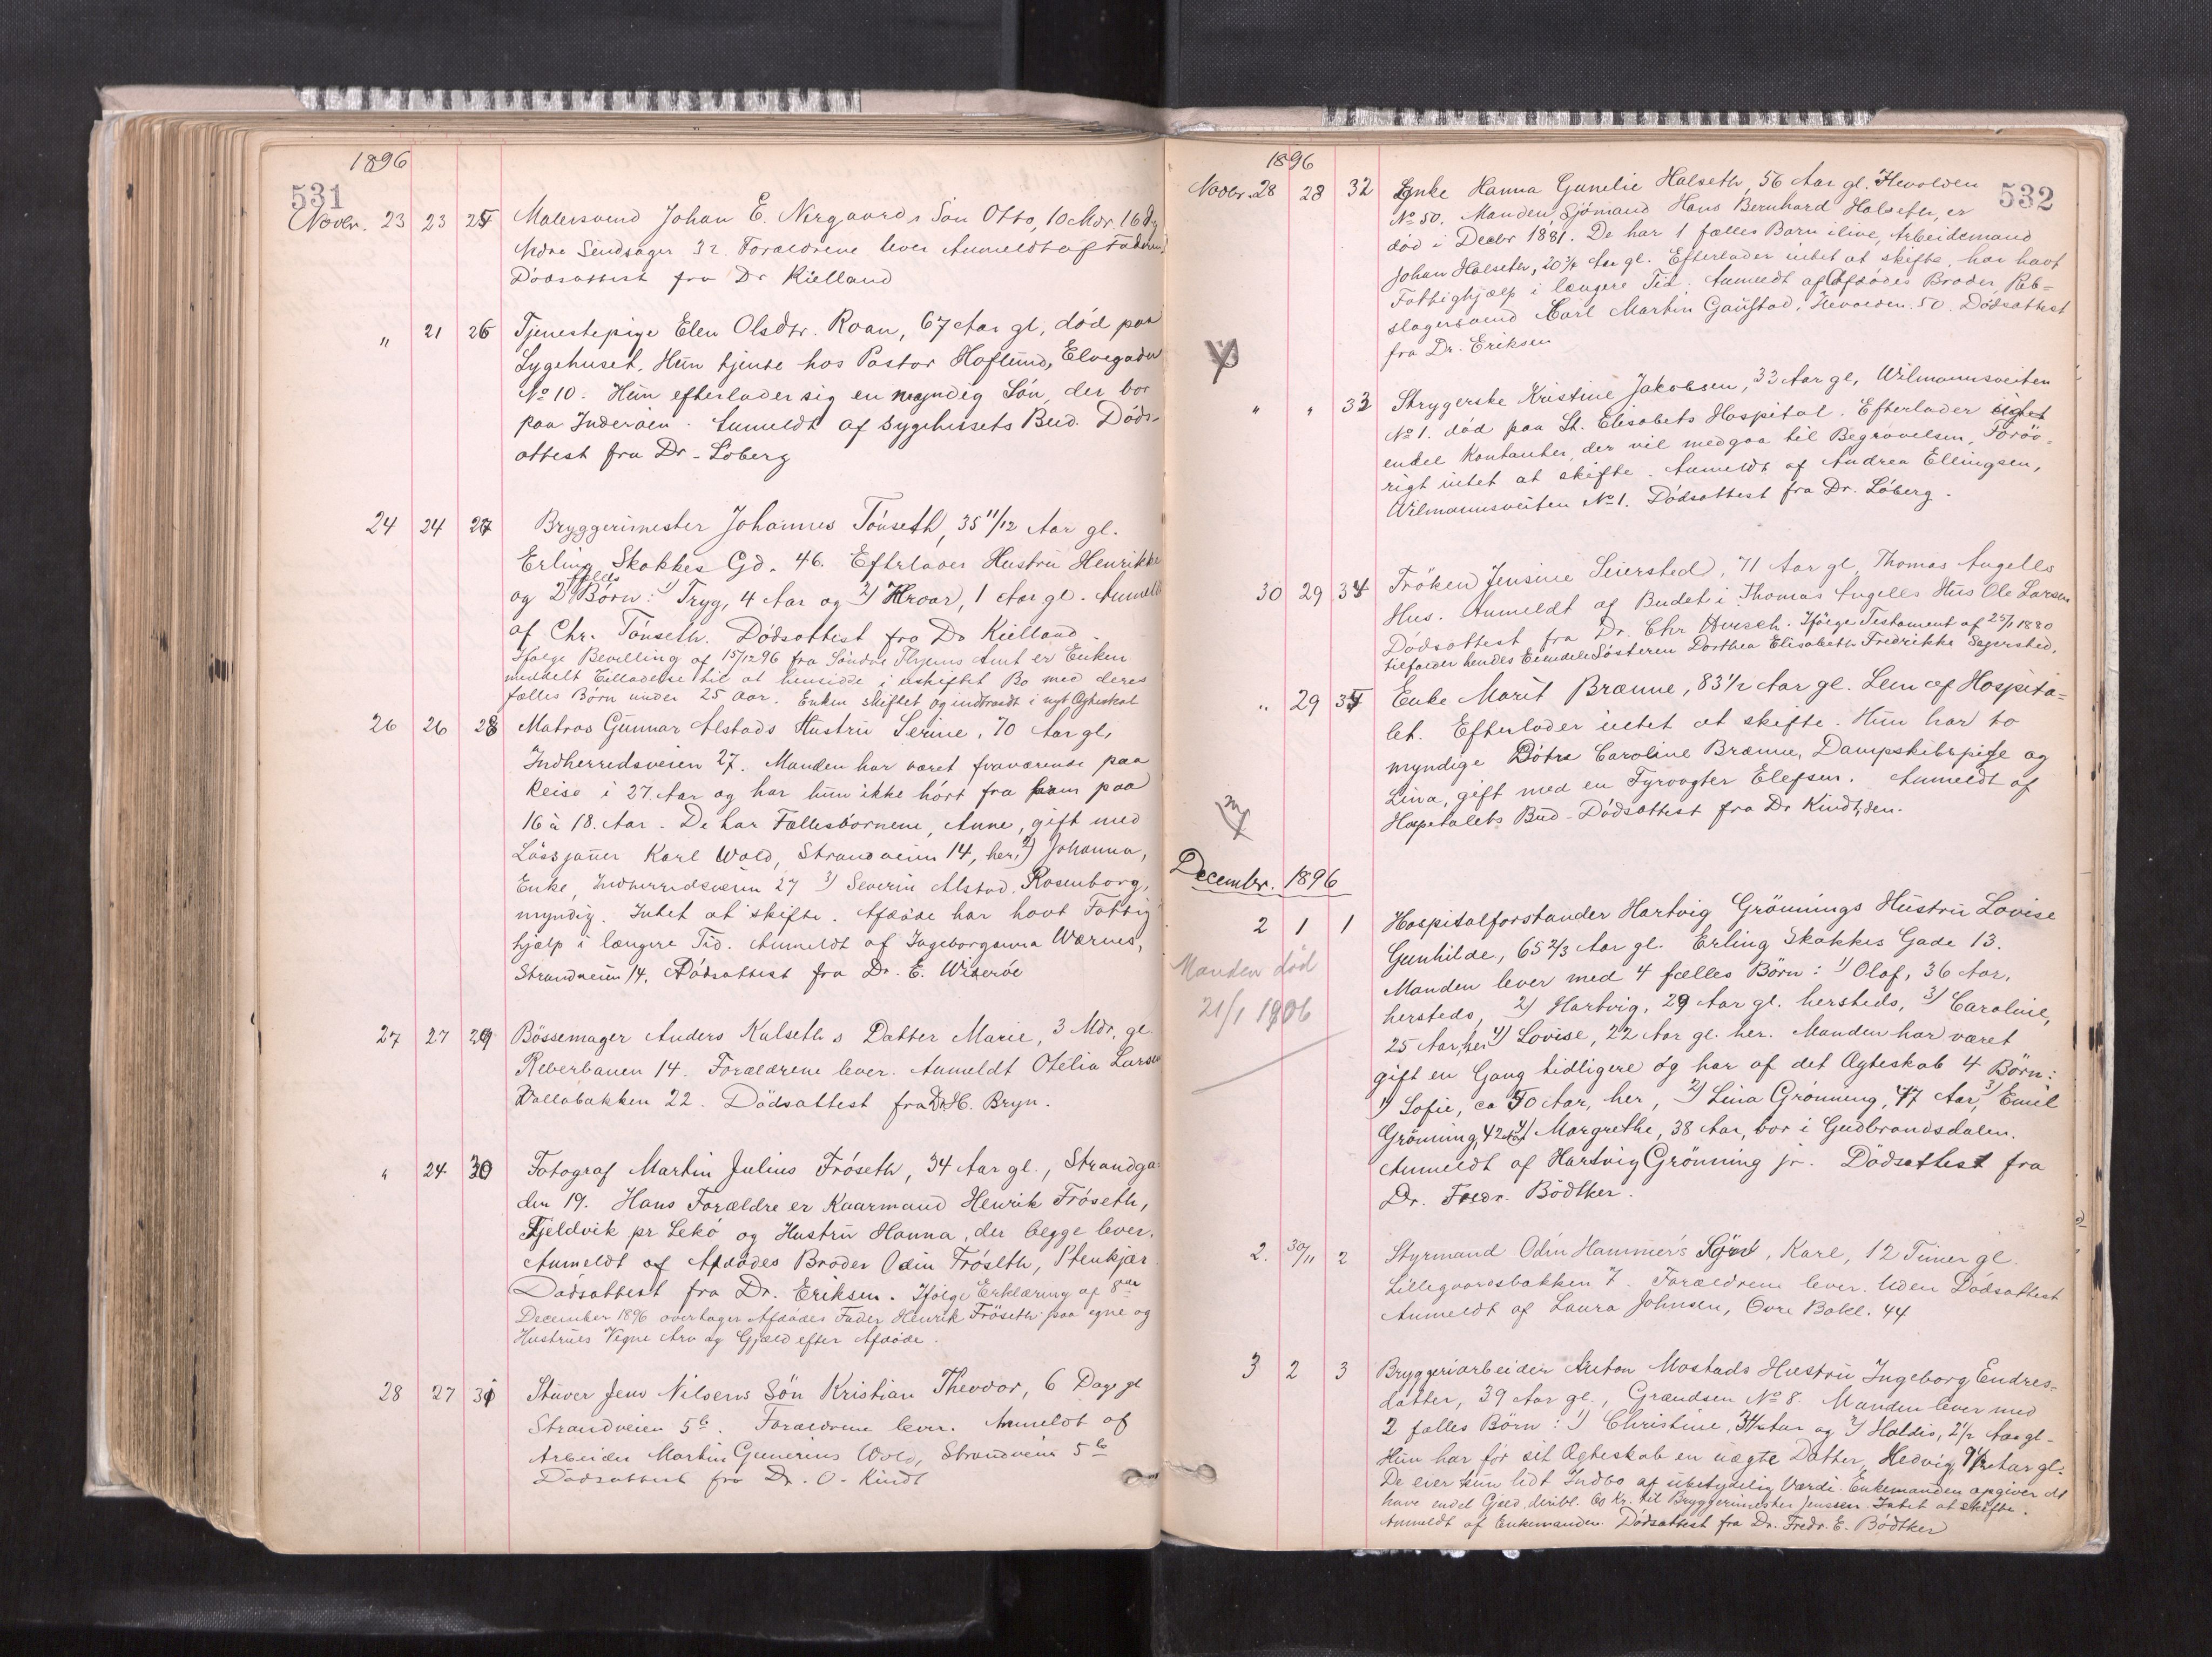 1896
531
Novbr. 23 23 25 Malersvend Johan E. Nergaards Søn Otto, 10 Mdr. 16 Dg
Nedre Sindsager 32. Forældrene lever Anmeldt af Faderen
Dödsattest fra Dr Kielland
" 21 26 Tjenestepige Elen Olsdtr. Roan, 67 Aar gl, död paa
Sygehuset. Hun tjente hos Pastor Hoflund, Elvegaden
No 10. Hun efterlader sig en myndig Sön, der bor
paa Inderöen. Anmeldt af Sygehusets Bud. Döds-
attest fra Dr. Löberg
24 24 27 Bryggerimester Johannes Tönseth, 35 11/12 Aar gl.
Erling Skakkes Gd. 46. Efterlader Hustru Henrikke
og 2 fælles Börn: 1) Tryg, 4 Aar og 2) Hroar, 1 Aar gl. Anmeldt
af Chr. Tönseth. Dödsattest fra Dr Kielland.
Ifølge Bevilling af 15/12 96 fra Söndre Thjems Amt er Enken
meddelt Tilladelse til at hensidde i uskiftet Bo med deres
fælles Börn under 25 Aar. Enken skiftet og indtraadt i nyt Ægteskab
26 26 28 Matros Gunnar Alstads Hustru Serine, 70 Aar gl,
Indherredsveien 27. Manden har været fraværende paa
Reise i 27 Aar og har hun ikke hört fra ham paa
16 à 18. Aar. De har Fællesbörnene, Anne, gift med
Lössjauer Karl Wold, Strandveien 14, her, 2) Johanna,
Enke, Indherredsveien 27 3) Severin Alstad, Rosenborg,
myndig. Intet at skifte. Afdöde har havt Fattig
hjælp i længere Tid. Anmeldt af Ingeborganna Wærnes,
Strandveien 14. Dödsattest fra Dr. E. Wideröe
27 27 29 Bössemager Anders Kulseths Datter Marie, 3 Mdr. gl.
Reberbanen 14. Forældrene lever. Anmeldt Otelia Larsen
Vollabakken 22. Dödsattest fra Dr H. Bryn.
" 24 30 Fotograf Martin Julius Fröseth, 34 Aar gl., Strandga-
den 19. Hans Forældre er Kaarmand Henrik Fröseth,
Fjeldvik pr Lekö og Hustru Hanna, der begge lever.
Anmeldt af Afdödes Broder Odin Fröseth, Stenkjær.
Dödsattest fra Dr. Eriksen. Ifølge Erklæring af 8de
December 1896 overtager Afdödes Fader Henrik Fröseth paa egne og
Hustrues Vegne Arv og Gjæld efter Afdöde.
28 27 31 Stuver Jens Nilsens Sön Kristian Theodor, 6 Dage gl
Strandveien 5b. Forældrene lever. Anmeldt af
Arbeider Martin Gunerius Wold, Strandveien 5b
Dödsattest fra Dr. O. Kindt
1896
532
Novbr. 28 28 32 Enke Hanna Gunelie Halseth, 56 Aar gl. Hevolden
No 50. Manden, Sjömand Hans Bernhard Halseth, er
död i Decbr 1881. De har 1 fælles Barn ilive, Arbeidsmand
Johan Halseth, 20 3/4 Aar gl. Efterlader intet at skifte, har havt
Fattighjælp i længere Tid. Anmeldt af Afdödes Broder, Reb-
slagersvend Carl Martin Gaustad, Hevolden 50. Dödsattest
fra Dr. Eriksen
" " 33 Strygerske Kristine Jakobsen, 33 Aar gl, Wilmannsveiten
No 1. död paa St. Elisabets Hospital. Efterlader
endel Kontanter, der vil medgaa til Begravelsen, Foröv-
rigt intet at skifte. Anmeldt af Andrea Ellingsen,
Wilmannsveiten No 1. Dödsattest fra Dr. Löberg.
30 29 34 Fröken Jensine Seiersted, 71 Aar gl, Thomas Angells
Hus. Anmeldt af Budet i Thomas Angells Hus Ole Larsen
Dödsattest fra Dr. Chr Hirsch. Ifölge Testament af 25/1 1880
tilfalder hendes Eiendele Södsteren Dorthea Elisabeth Fredrikke Segersted.
" 29 35 Enke Marit Brænne, 83 1/2 Aar gl. Lem af Hospita-
let. Efterlader intet at skifte. Hun har to
myndige Dötre Caroline Brænne, Dampskibspige og
Lina, gift med en Fyrvogter Elefsen. Anmeldt af
Hospitalets Bud. Dödsattest fra Dr Kindt, sen.
December. 1896
2 1 1 Hospitalforstander Hartvig Grönnings Hustru Lovise
Gunhilde, 65 2/3 Aar gl. Erling Skakkes Gade 13.
Manden død
Manden lever med 4 fælles Börn: 1) Olaf, 36 Aar,
21/1 1906
hersteds, 2) Hartvig, 29 Aar gl. hersteds, 3) Caroline,
25 Aar, her 4) Lovise, 22 Aar gl. her. Manden har været
gift en Gang tidligere og har af det Ægteskab 4 Börn:
1) Sofie, ca 50 Aar, her, 2) Lina Grönning, 47 Aar, 3) Emil
Grönning, 42 Aar 4) Margrethe, 38 Aar, bor i Gudbrandsdalen.
Anmeldt af Hartvig Grönning jr. Dödsattest fra
Dr. Fredr. Bödtker.
2. 30/11 2 Styrmand Odin Hammer's Sön, Karl, 12 Timer gl.
Lillegaardsbakken 7. Forældrene lever. Uden Dödsattest
Anmeldt af Laura Johnsen, Övre Bakl. 44
3 2 3 Bryggeriarbeider Anton Mostads Hustru Ingeborg Endres-
datter, 39 Aar gl., Grændsen No 8. Manden lever med
2 fælles Börn: 1) Christine, 3 1/2 Aar og 2) Haldis, 2 1/2 Aar gl.
Hun har för sit Ægteskab en uægte Datter, Hedvig, 9 1/2 Aar gl.
De eier kun lidt Indbo af ubetydelig Værdi. Enkemanden opgiver at
have endel Gjæld, deribl. 60 Kr. til Bryggerimester Jenssen. Intet at skifte.
Anmeldt af Enkemanden. Dödsattest fra Dr. Fredr. E. Bödtker